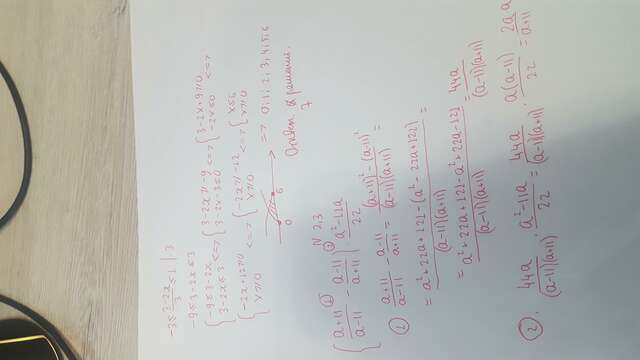 -3 ≤ (3-2x)/3 ≤ 1 | ·3
-9 ≤ 3-2x ≤ 3
{ -9 ≤ 3-2x ; 3-2x ≤ 3 <=> { 3-2x ≥ -9 ; 3-2x-3 ≤ 0 <=> { 3-2x+9 ≥ 0 ; -2x ≤ 0 <=>
{ -2x+12 ≥ 0 ; x ≥ 0 <=> { -2x ≥ -12 ; x ≥ 0 <=> { x ≤ 6 ; x ≥ 0
0 6 => 0; 1; 2; 3; 4; 5; 6
7
N 2.3
{ (a+11)/(a-11) - (a-11)/(a+11) } (a²-11a)/22
1) (a+11)/(a-11) - (a-11)/(a+11) = ((a+11)² - (a-11)²)/((a-11)(a+11)) =
= (a²+22a+121-(a²-22a+121))/((a-11)(a+11)) =
= (a²+22a+121-a²+22a-121)/((a-11)(a+11)) = 44a/((a-11)(a+11))
2). 44a/((a-11)(a+11)) · (a²-11a)/22 = 44a/((a-11)(a+11)) · a(a-11)/22 = 2a·a/(a+11)